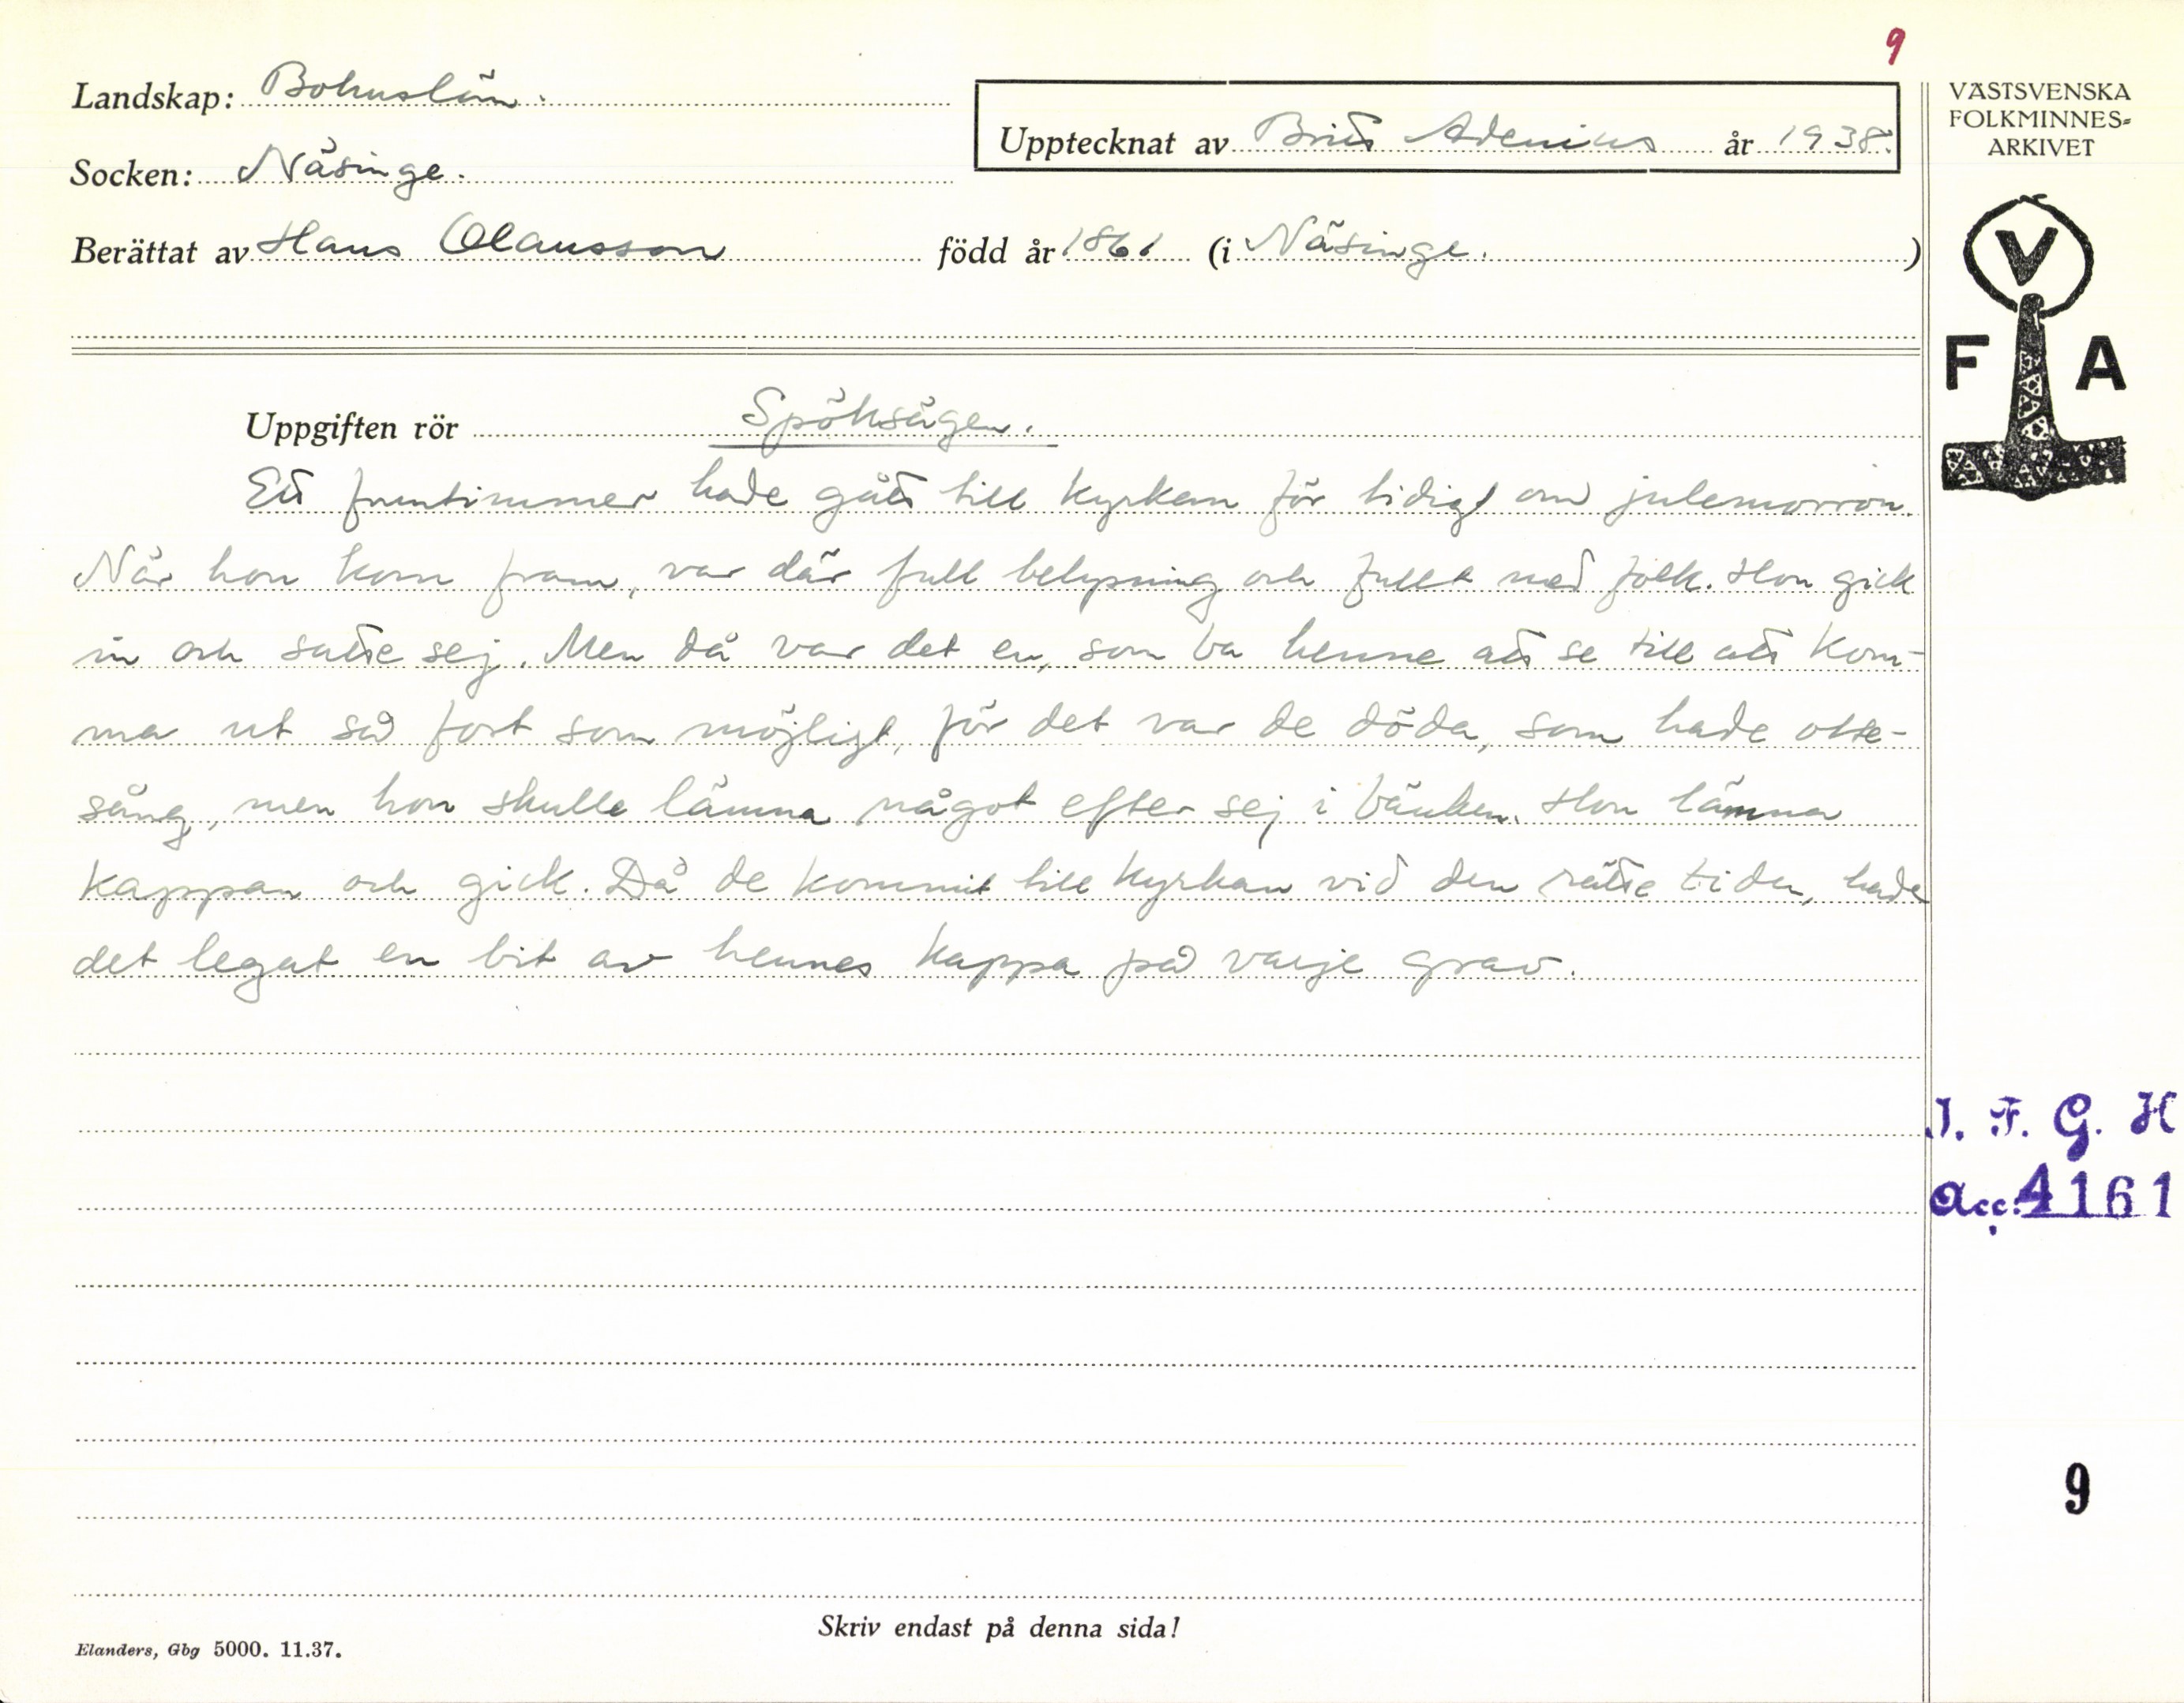 9
Landskap: Bohuslän.
Upptecknat av Britt Adenius år 1938.
Socken: Näsinge.
Berättat av Hans Olausson född år 1861 (i Näsinge.)
VÄSTSVENSKA
FOLKMINNES=
ARKIVET
V
F A
Uppgiften rör Spöksägen.
Ett fruntimmer hade gått till kyrkan för tidigt om julemorron.
När hon kom fram, var där full belysning och fullt med folk. Hon gick
in och satte sej. Men då var det en, som ba henne att se till att kom-
ma ut så fort som möjligt, för det var de döda, som hade otte-
sång, men hon skulle lämna något efter sej i bänken. Hon lämna
kappan och gick. Då de kommit till kyrkan vid den rätte tiden, hade
det legat en bit av hennes kappa på varje grav.
I. F. G. H
Acc: 4161
9
Skriv endast på denna sida!
Elanders, Gbg 5000. 11.37.